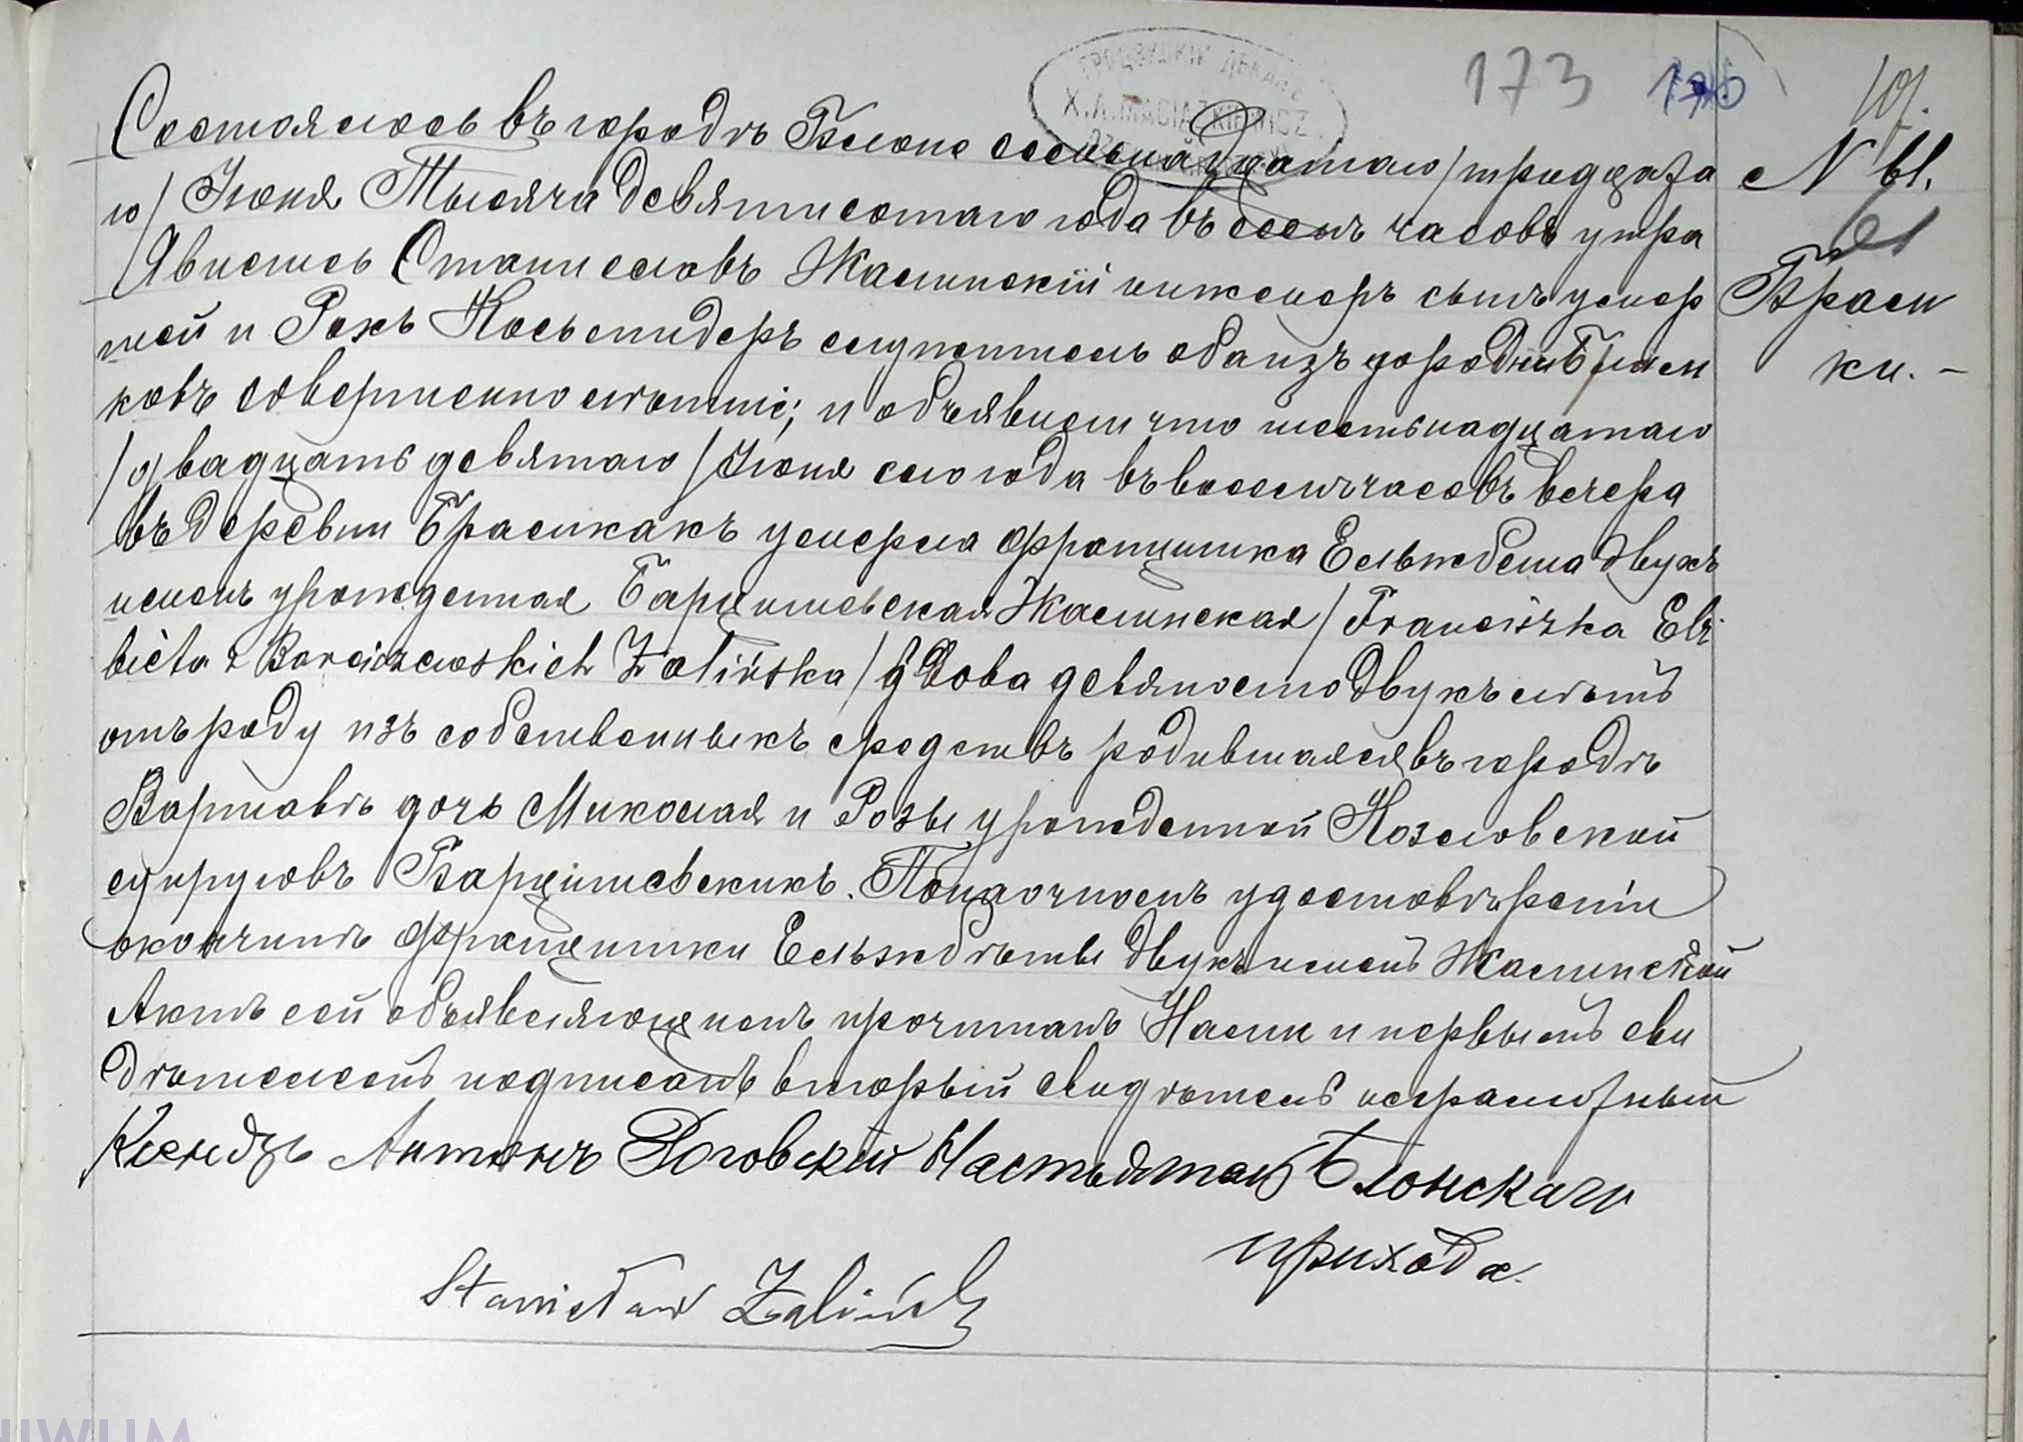 173
107.
Состоялось въ городѣ Блоне семнадцатаго /тридцата
го/ Іюня Тысяча девятисотаго года въ семь часовъ утра
Явились Станиславъ Жалинскій инженеръ сынъ умер
шей и Рохъ служитель оба изъ
ковъ совершеннолѣтніе; и объявили что шестьнадцатаго
/двадцать девятаго/ Іюня сего года въ восемь часовъ вечера
въ деревни Брамкахъ умерла Францишка Ельжбета двухъ
именъ урожденная Барцишевская Жалинская /Franciszka Elż
bièta z Barciszewskich Żalińska/ вдова девяносто двухъ лѣтъ
отъ роду изъ собственныхъ средствъ родившаяся въ городѣ
Варшавѣ дочь Миколая и Розы урожденной Козловской
супруговъ Барцишевскихъ. По наочномъ удостовѣреніи
о кончинѣ Францишки Ельжбѣты двухъ именъ Жалинской
Актъ сей объявляющимъ прочитанъ Нами и первымъ сви
дѣтелемъ подписанъ вторый свидѣтель неграмотный
Ксендзъ Антонъ Роговскій Настоятель Блонскаго
прихода.
Stanisław Żaliński
N 61.
61
Брам
ки. -